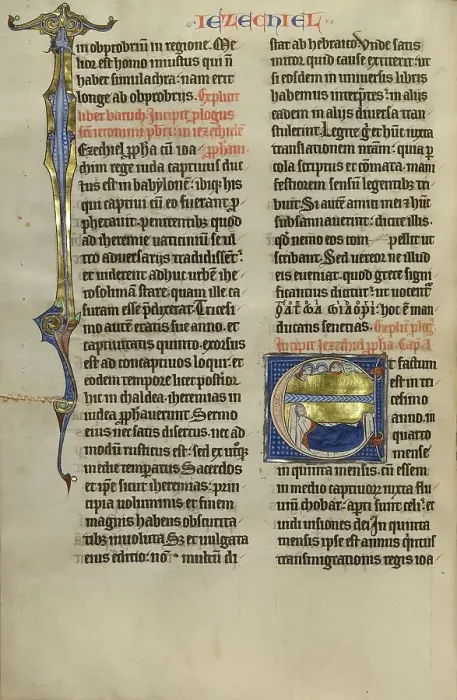 IEZECHIEL
in obprobriū in regione. Me
lior est homo iustus qui n̄
habet simulachra: nam erit
longe ab obprobrijs. Explicit
liber baruch. Incipit plogus
sc̄i ieronimi pbr̄i in iezechielē
Ezechiel ppha cū ioa ppham
chim rege iuda captiuus duc
tus est in babylonē: ibiq; his
qui captiui cū eo fuerant p
phetauit. penitentibus quod
ad iheremie uaticiniū se ul
tro aduersarijs tradidissēt:
et uiderent adhuc urbē ihe
rosolimā stare. quam ille ca
suram esse pdixerat. Tricesi
mo autē etatis sue anno. et
captiuitatis quinto. exorsus
est ad concaptiuos loqui. et
eodem tempore licet postior
hic in chaldea. iheremias in
iudea pphauerunt. Sermo
eius nec satis disertus. nec ad
modū rusticus est: sed ex utq;
medie temperatus. Sacerdos
et ipē sicut iheremias: prin
cipia uoluminis et finem
magnis habens obscurita
tibz inuoluta. Sz et uulgata
eius editio: nō multū di
stat ab hebraico. Unde satis
miror quid cause extiterit: ut
si eosdem in uniuersis libris
habemus interpͬtes: in alijs
eadem in alijs diuersa tran
stulerint. Legite g̊ et hūc iuxta
translationem nr̄am: quia p
cola scriptus et cōmata. mani
festiorem sensū legentibus tri
buit. Si autē amici mei et hūc
subsannauerint: dicite illis.
qd̄ nemo eos com pellit ut
scribant. Sed uereor ne illud
eis eueniat. quod grece signi
ficantius dicitur: ut uocent̄
hoc ē man
ducans senecias. Explic̄ plog
Incipit Iezechiel ppha. Cap. I
Et factum
est in tri
cesimo
anno. in
quarto
mense
in quinta mensis. cū essem
in medio captiuoꝝ iuxta flu
uiū chobar: apti sunt celi. et
uidi uisiones dei. In quinta
mensis ipse est annus quītus
transmigrationis regis ioa